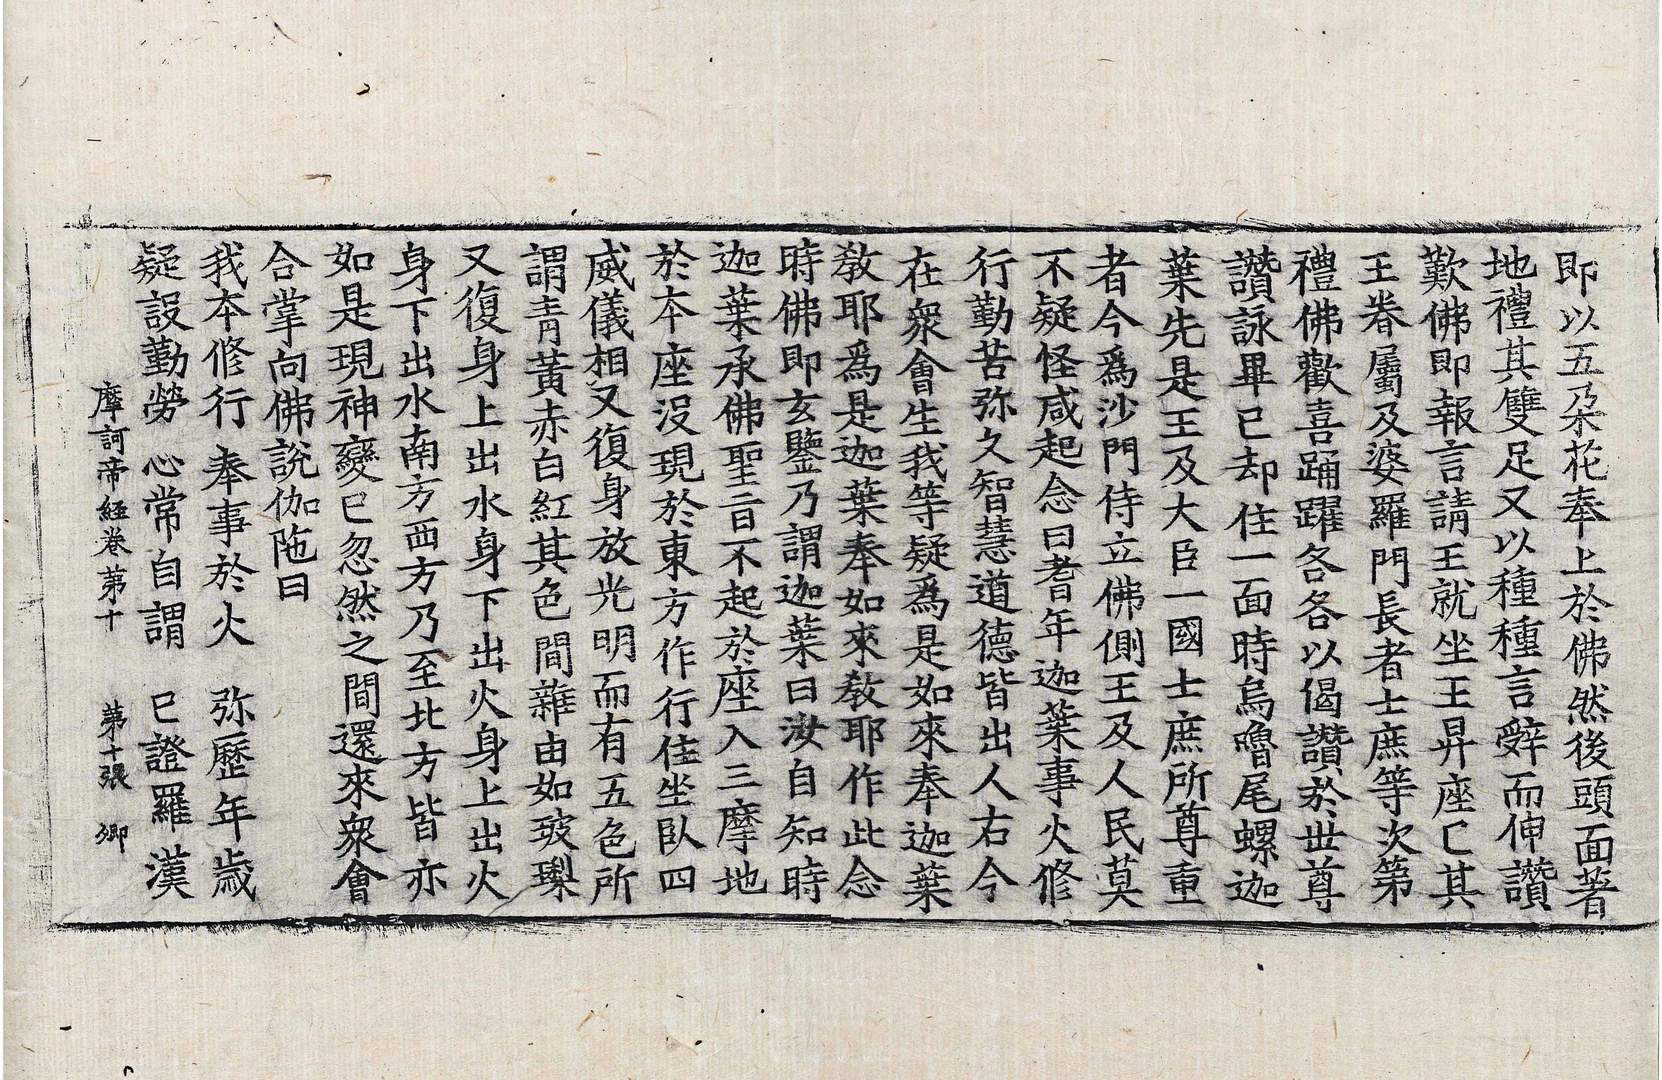 即以五朶花奉上於佛然後頭面著
地禮其雙足又以種種言辝而伸讃
歎佛即報言請王就坐王昇座已其
王眷屬及婆羅門長者士庶等次第
禮佛歡喜踊躍各各以偈讃於世尊
讃詠畢已却住一面時烏嚕尾螺迦
葉先是王及大臣一國士庶所尊重
者今爲沙門侍立佛側王及人民莫
不疑怪咸起念曰耆年迦葉事火修
行勤苦弥久智慧道德皆出人右今
在衆會生我等疑爲是如來奉迦葉
教耶爲是迦葉奉如來教耶作此念
時佛即玄鑒乃謂迦葉曰汝自知時
迦葉承佛聖旨不起於座入三摩地
於本座沒現於東方作行住坐臥四
威儀相又復身放光明而有五色所
謂青黃赤白紅其色間雜由如玻瓈
又復身上出水身下出火身上出火
身下出水南方西方乃至北方皆亦
如是現神變已忽然之間還來衆會
合掌向佛說伽陁曰
我本修行 奉事於火 弥歷年歲
疑設勤勞 心常自謂 已證羅漢
摩訶帝經卷第十 第十張 卿